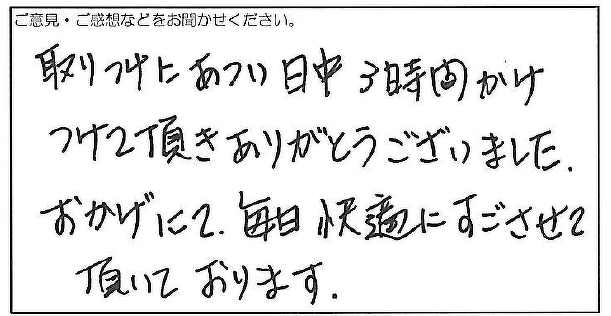 ご意見・ご感想などをお聞かせください。
取りつけにあつい日中3時間かけ
つけて頂きありがとうございました.
おかげにて.毎日快適にすごさせて
頂いております.